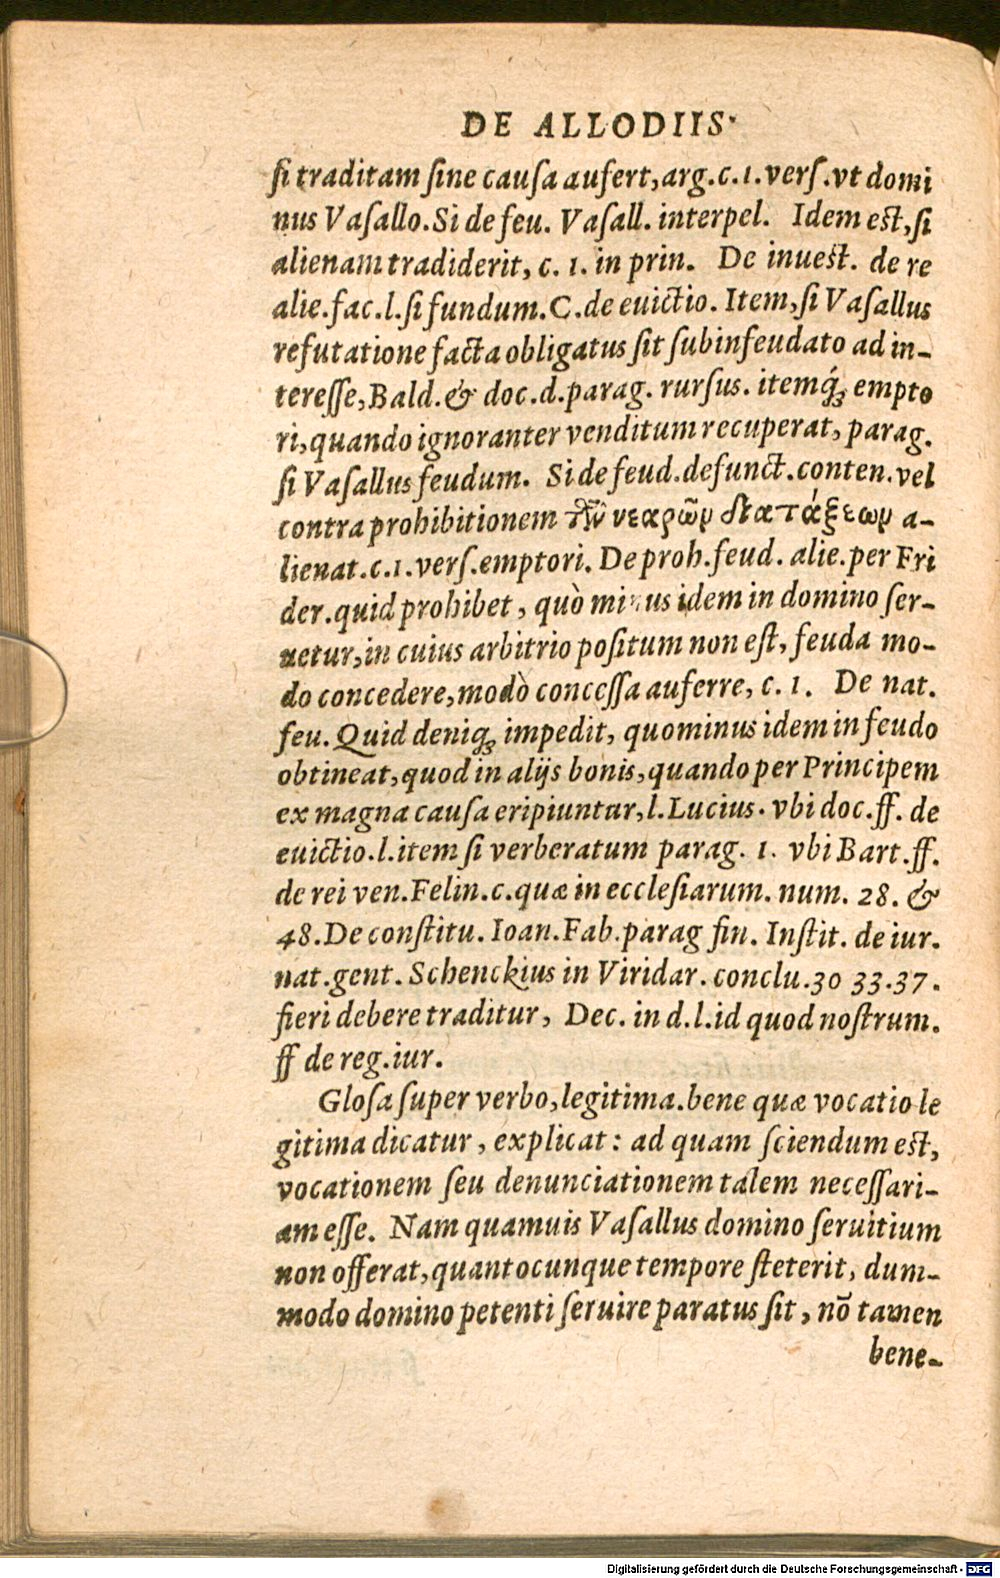 DE ALLODIIS.
si traditam sine causa aufert, arg. c. 1. vers. vt domi
nus Vasallo. Si de feu. Vasall. interpel. Idem est, si
alienam tradiderit, c. 1. in prin. De inuest. de re
alie. fac. l. si fundum. C. de euictio. Item, si Vasallus
refutatione facta obligatus sit subinfeudato ad in-
teresse, Bald. & doc. d. parag. rursus. itemq́; empto
ri, quando ignoranter venditum recuperat, parag.
si Vasallus feudum. Si de feud. defunct. conten. vel
contra prohibitionem τῶν νεαρῶν διατάξεων a-
lienat. c. 1. vers. emptori. De proh. feud. alie. per Fri
der. quid prohibet, quò minus idem in domino ser-
uetur, in cuius arbitrio positum non est, feuda mo-
do concedere, modò concessa auferre, c. 1. De nat.
feu. Quid deniq; impedit, quominus idem in feudo
obtineat, quod in alijs bonis, quando per Principem
ex magna causa eripiuntur, l. Lucius. vbi doc. ff. de
euictio. l. item si verberatum parag. 1. vbi Bart. ff.
de rei ven. Felin. c. quæ in ecclesiarum. num. 28. &
48. De constitu. Ioan. Fab. parag fin. Instit. de iur.
nat. gent. Schenckius in Viridar. conclu. 30 33. 37.
fieri debere traditur, Dec. in d. l. id quod nostrum.
ff de reg. iur.
Glosa super verbo, legitima. bene quæ vocatio le
gitima dicatur, explicat: ad quam sciendum est,
vocationem seu denunciationem talem necessari-
am esse. Nam quamuis Vasallus domino seruitium
non offerat, quantocunque tempore steterit, dum-
modo domino petenti seruire paratus sit, nõ tamen
bene-
Digitalisierung gefördert durch die Deutsche Forschungsgemeinschaft - DFG